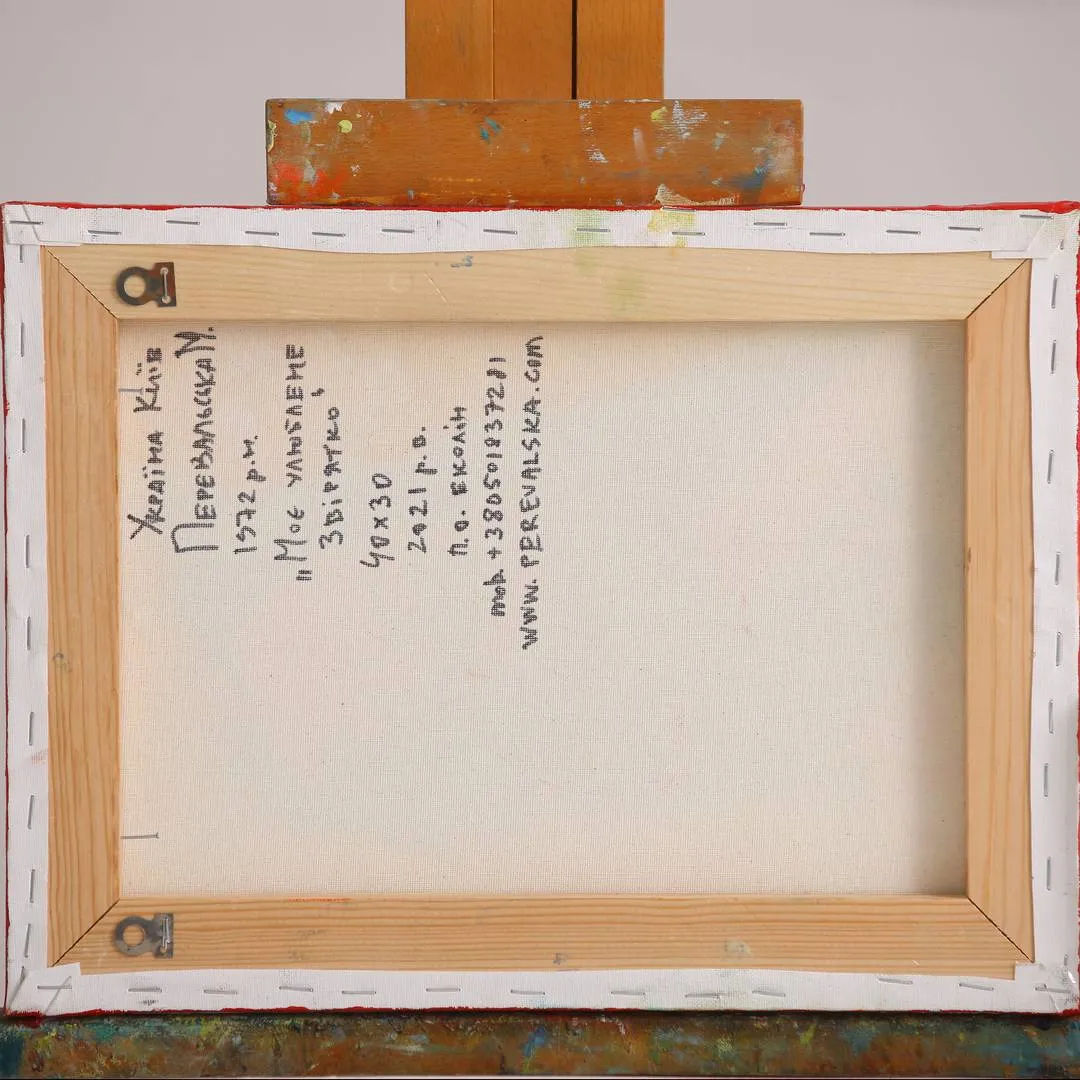 Україна Київ
Перевальська М.
1972 р.н.
"Моє улюблене
звірятко"
40х30
2021 р.в.
п.о. еколін
моб. +380501837281
www.PEREVALSKA.com